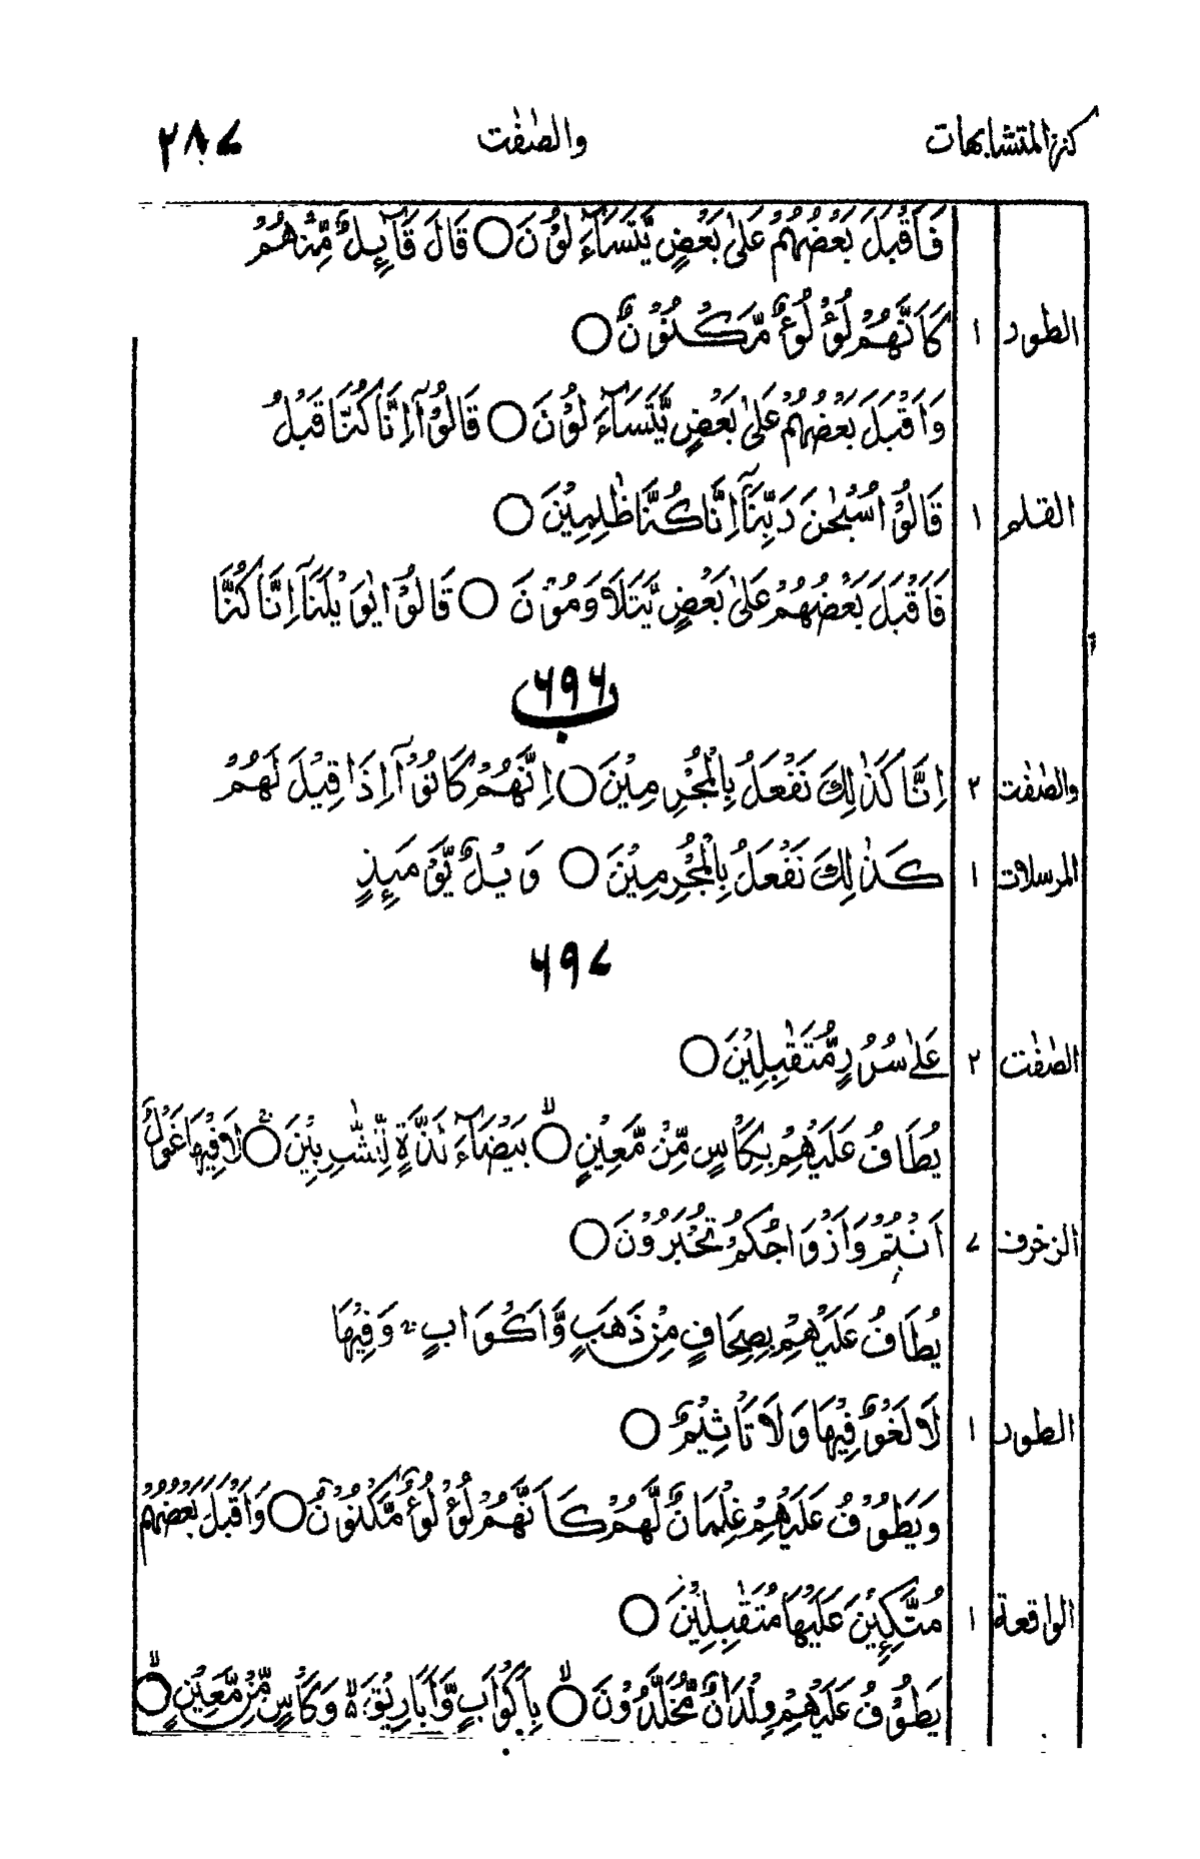 كنز المتشابهات والصّٰفّٰت ٢٨٧
فَاَقْبَلَ بَعْضُهُمْ عَلٰى بَعْضٍ يَّتَسَآءَلُوْنَ ○ قَالَ قَآئِلٌ مِّنْهُمْ
الطور ١ كَاَنَّهُمْ لُؤْلُؤٌ مَّكْنُوْنٌ ○
وَاَقْبَلَ بَعْضُهُمْ عَلٰى بَعْضٍ يَّتَسَآءَلُوْنَ ○ قَالُوْٓا اِنَّا كُنَّا قَبْلُ
القلم ١ قَالُوْا سُبْحٰنَ رَبِّنَآ اِنَّا كُنَّا ظٰلِمِيْنَ ○
فَاَقْبَلَ بَعْضُهُمْ عَلٰى بَعْضٍ يَّتَلَاوَمُوْنَ ○ قَالُوْا يٰوَيْلَنَآ اِنَّا كُنَّا
٦٩٦ ب
والصّٰفّٰت ٢ اِنَّا كَذٰلِكَ نَفْعَلُ بِالْمُجْرِمِيْنَ ○ اِنَّهُمْ كَانُوْٓا اِذَا قِيْلَ لَهُمْ
المرسلات ١ كَذٰلِكَ نَفْعَلُ بِالْمُجْرِمِيْنَ ○ وَيْلٌ يَّوْمَئِذٍ
٦٩٧
الصّٰفّٰت ٢ عَلٰى سُرُرٍ مُّتَقٰبِلِيْنَ ○
يُطَافُ عَلَيْهِمْ بِكَاْسٍ مِّنْ مَّعِيْنٍ ○ بَيْضَآءَ لَذَّةٍ لِّلشّٰرِبِيْنَ ○ لَا فِيْهَا غَوْلٌ
الزخرف ٧ اَنْتُمْ وَاَزْوَاجُكُمْ تُحْبَرُوْنَ ○
يُطَافُ عَلَيْهِمْ بِصِحَافٍ مِّنْ ذَهَبٍ وَّاَكْوَابٍ وَفِيْهَا
الطور ١ لَا لَغْوٌ فِيْهَا وَلَا تَاْثِيْمٌ ○
وَيَطُوْفُ عَلَيْهِمْ غِلْمَانٌ لَّهُمْ كَاَنَّهُمْ لُؤْلُؤٌ مَّكْنُوْنٌ ○ وَاَقْبَلَ بَعْضُهُمْ
الواقعة ١ مُتَّكِـِٕيْنَ عَلَيْهَا مُتَقٰبِلِيْنَ ○
يَطُوْفُ عَلَيْهِمْ وِلْدَانٌ مُّخَلَّدُوْنَ ○ بِاَكْوَابٍ وَّاَبَارِيْقَ وَكَاْسٍ مِّنْ مَّعِيْنٍ ○